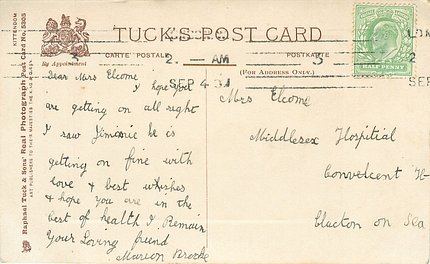 TUCK'S POST CARD
By Appointment
CARTE POSTALE
POSTKARTE
(FOR ADDRESS ONLY.)
KITTENDOM
Raphael Tuck & Sons' Real Photograph Post Card No. 5305
ART PUBLISHERS TO THEIR MAJESTIES THE KING & QUEEN
2. AM
SEP 4
HALF PENNY
Dear Mrs Elcome
I hope you
are getting on all right
I saw he is
getting on fine with
love & best whishes
& hope you are in the
best of health I Remain
Your Loving friend
Marion
Mrs Elcome
Middlesex Hospitial
Convelcent
Clacton on Sea